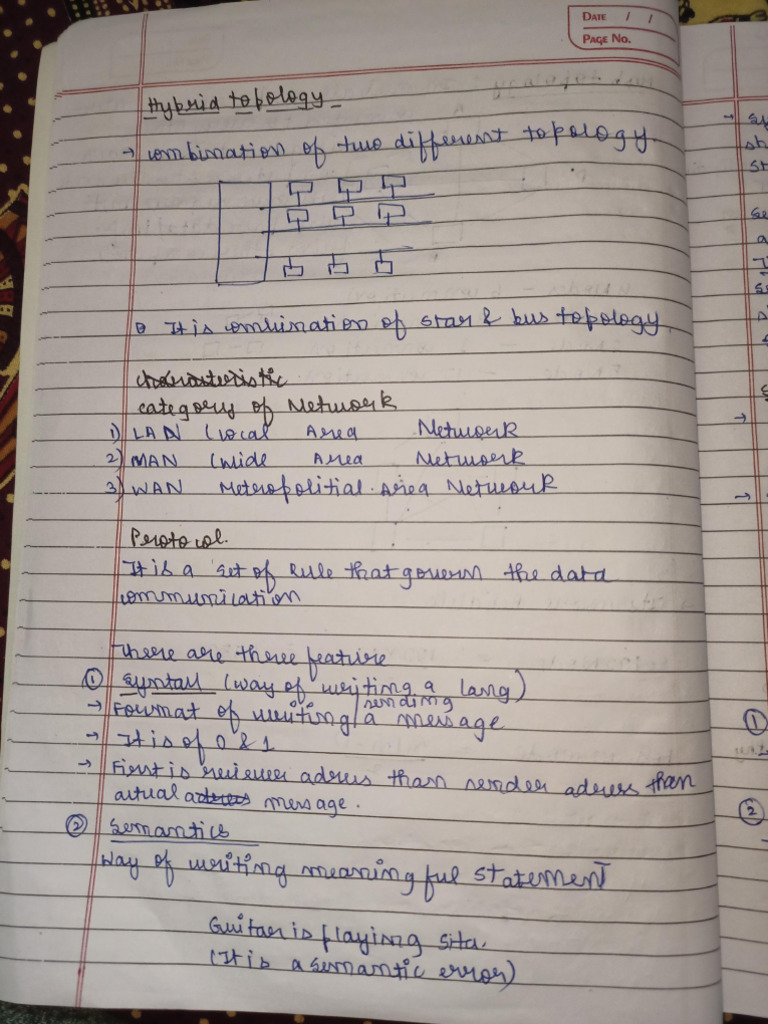 DATE / /
PAGE NO.
Hybrid topology
→ combination of two different topology.
It is combination of star & bus topology.
characteristic
category of Network
1) LAN (local Area Network
2) MAN (wide Area Network
3) WAN Metropolitial Area Network
Protocol.
It is a set of rule that govern the data
communication
There are three feature
① Syntax (way of writing a lang)
→ Format of writing / sending a message
→ It is of 0 & 1
→ First is reciever adress than sender adress than
actual adress message.
② Semantics
Way of writing meaningful statement
Guitar is playing sita.
(It is a semantic error)